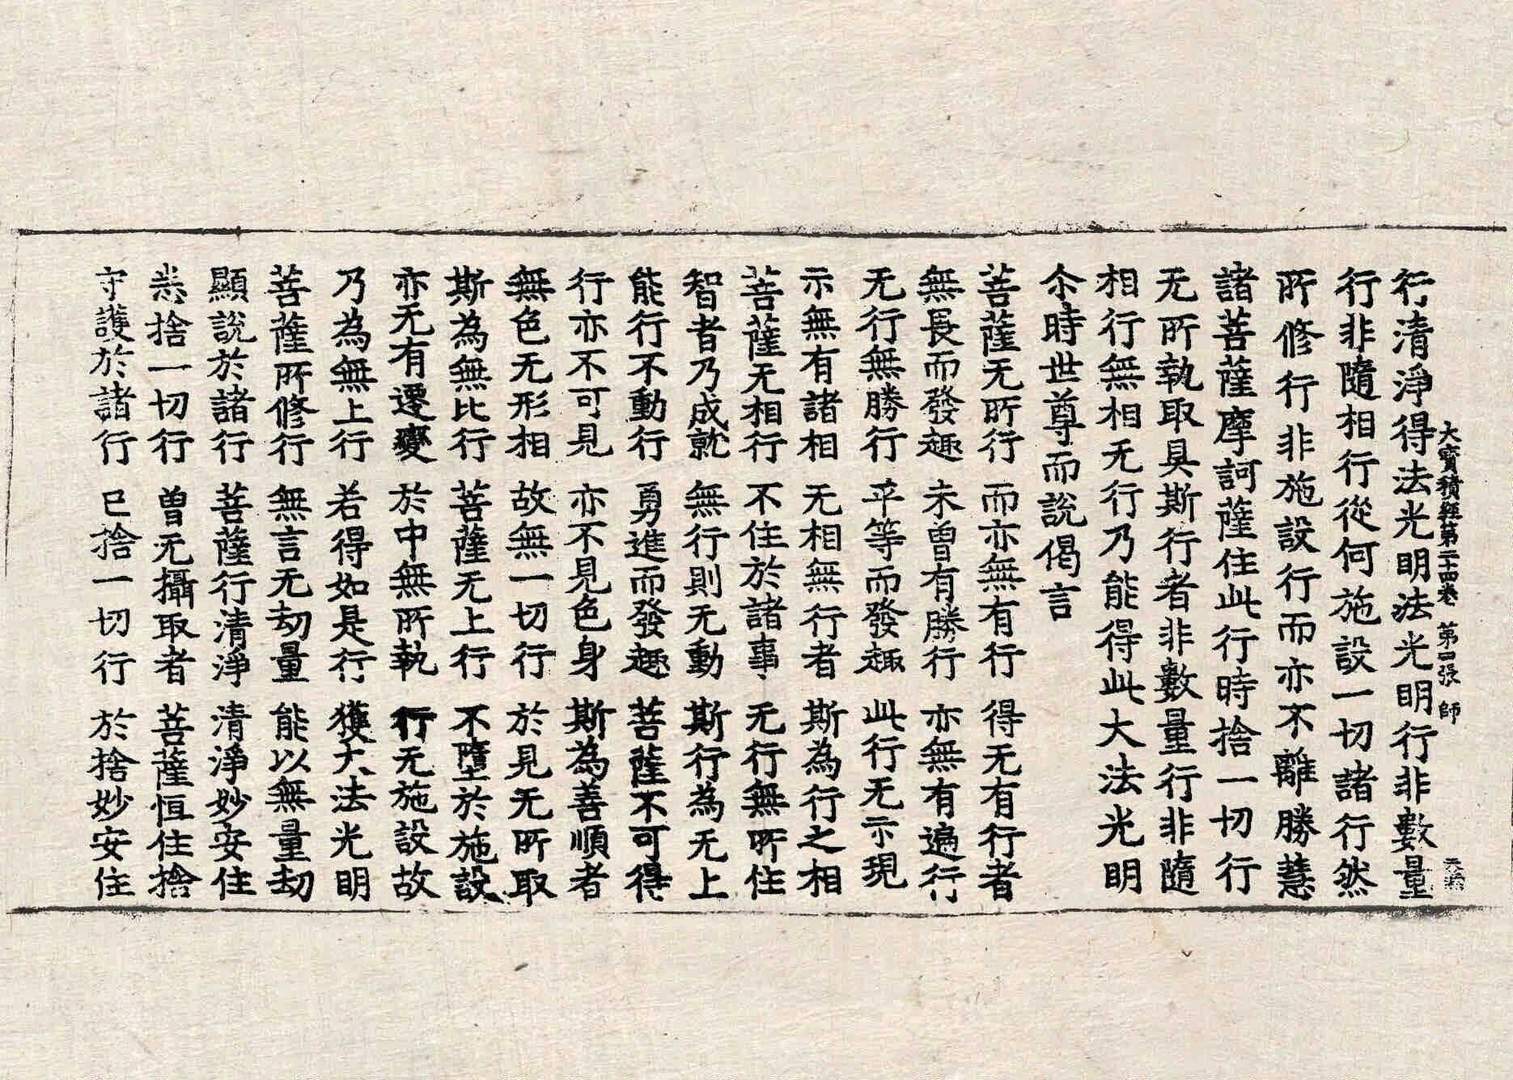 大寶積經第二十四卷 第四張 師
行清淨得法光明法光明行非數量
行非隨相行從何施設一切諸行然
所修行非施設行而亦不離勝慧
諸菩薩摩訶薩住此行時捨一切行
无所執取具斯行者非數量行非隨
相行無相无行乃能得此大法光明
尒時世尊而說偈言
菩薩无所行 而亦無有行 得无有行者
無長而發趣 未曾有勝行 亦無有遍行
无行無勝行 平等而發趣 此行无示現
示無有諸相 无相無行者 斯為行之相
菩薩无相行 不住於諸事 无行無所住
智者乃成就 無行則无動 斯行為无上
能行不動行 勇進而發趣 菩薩不可得
行亦不可見 亦不見色身 斯為善順者
無色无形相 故無一切行 於見无所取
斯為無比行 菩薩无上行 不墮於施設
亦无有遷變 於中無所執 行无施設故
乃為無上行 若得如是行 獲大法光明
菩薩所修行 無言无劫量 能以無量劫
顯說於諸行 菩薩行清淨 清淨妙安住
悉捨一切行 曾无攝取者 菩薩恒住捨
守護於諸行 已捨一切行 於捨妙安住